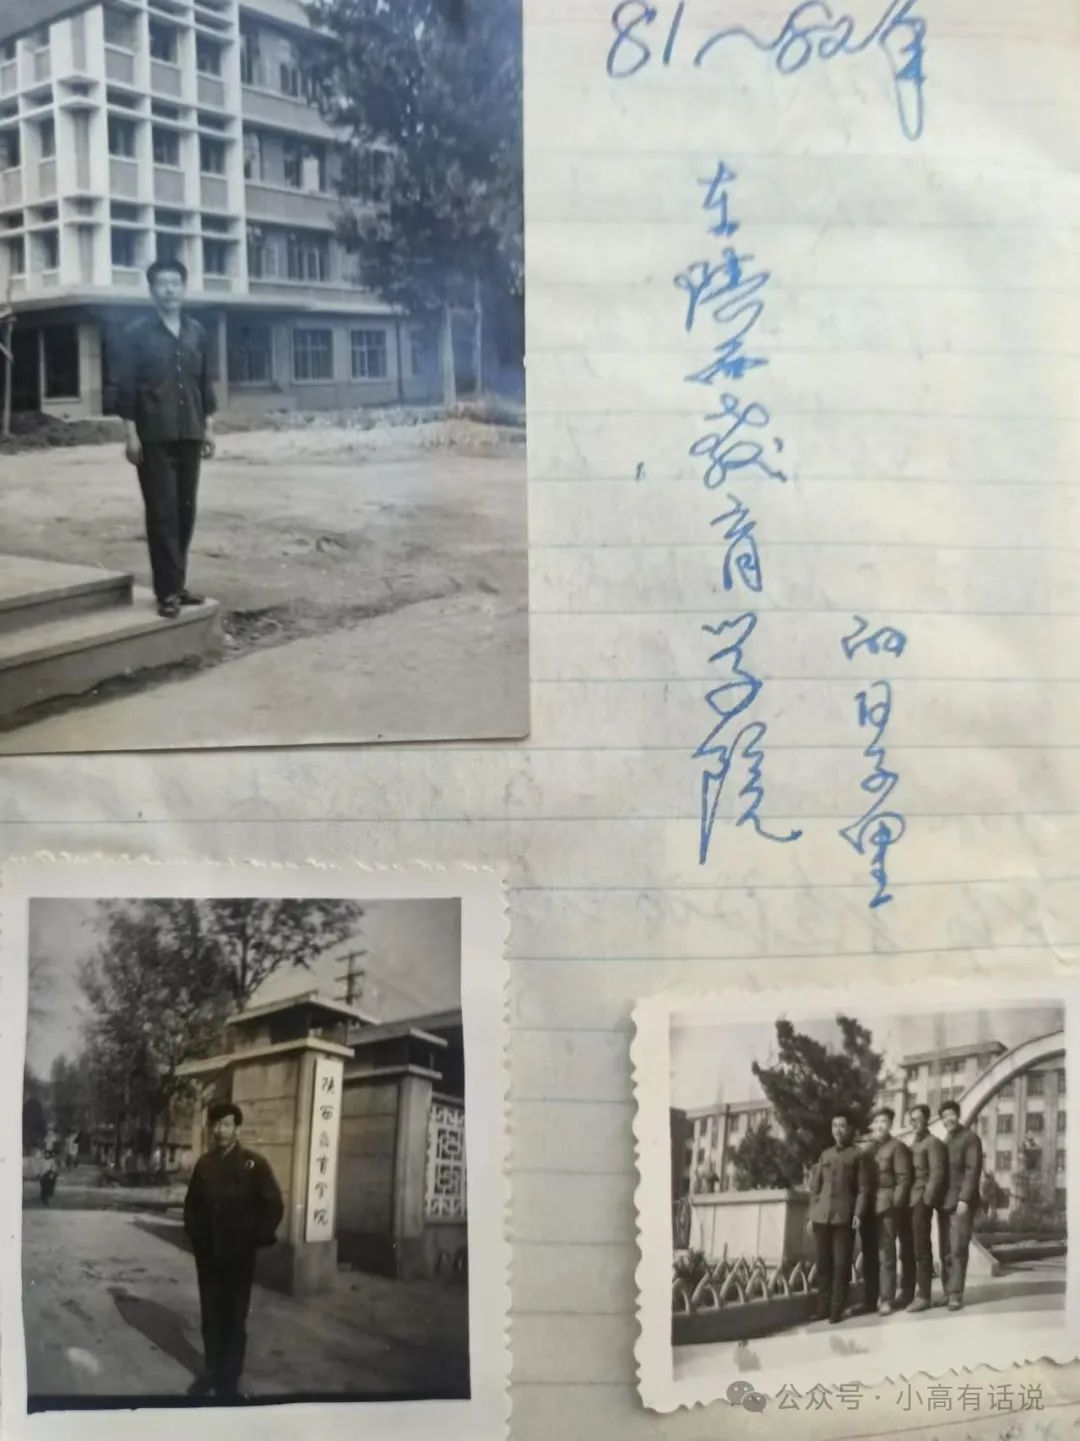 81~82年
在陕西教育学院
的日子里
陕西教育学院
公众号 · 小高有话说